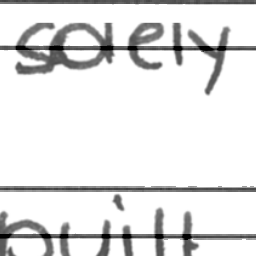 solely
built